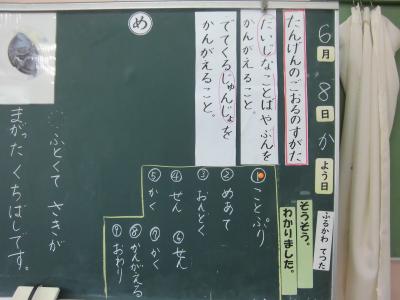 6月8日かよう日
ふるかわ てつた
たんげんのごおるのすがた
だいじな ことばやぶんを
かんがえること
でてくるじゅんじょを
かんがえること。
そうそう。
わかりました。
め
①ことぷり
②めあて
③おんどく
④せん
⑤かく
⑥せん
⑦かく
⑧かんがえる
⑨おわり
ふとくて さきが
まがったくちばしです。